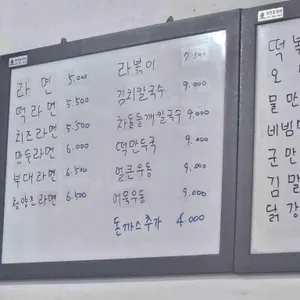 라면 5.000
떡라면 5.500
치즈라면 5.500
만두라면 6.000
부대라면 6.500
청양초라면 6.500
라볶이 7.500
김치칼국수 9.000
차돌들깨칼국수 9.000
떡만두국 9.000
얼큰우동 9.000
어묵우동 9.000
돈까스추가 4.000
떡볶
오
물만
비빔만
군만
김말
닭강